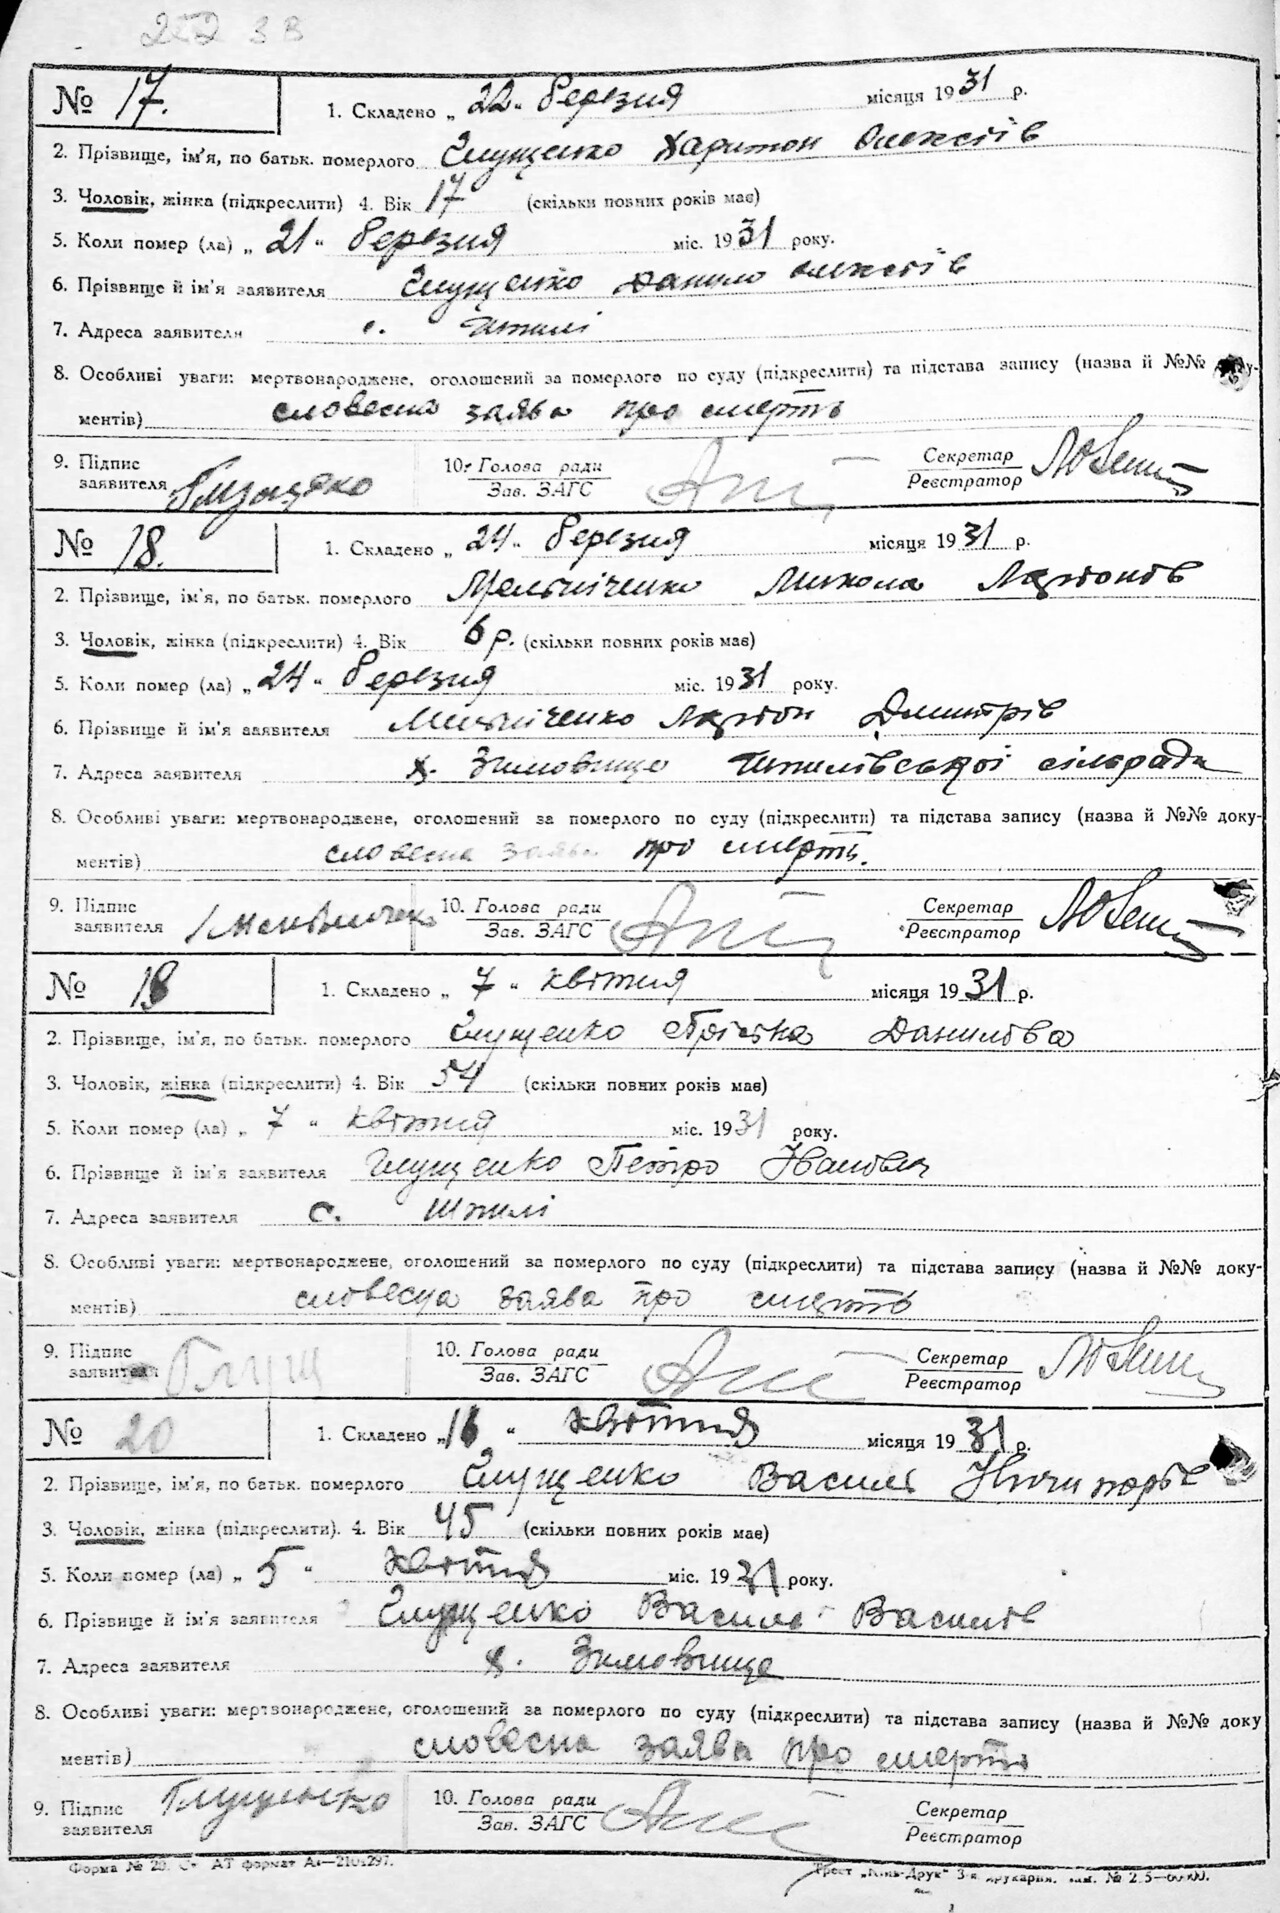 252 зв
№ 17. 1. Складено „ 22 “ березня місяця 1931 р.
2. Прізвище, ім'я, по батьк. померлого Глущенко Харитон Олексіїв
3. Чоловік, жінка (підкреслити) 4. Вік 17 (скільки повних років має)
5. Коли помер (ла) „ 21 “ березня міс. 1931 року.
6. Прізвище й ім'я заявителя Глущенко Данило Олексіїв
7. Адреса заявителя с. Штилі
8. Особливі уваги: мертвонароджене, оголошений за померлого по суду (підкреслити) та підстава запису (назва й №№ доку-
ментів) словесна заява про смерть
9. Підпис заявителя Глущенко 10. Голова ради Зав. ЗАГС Секретар Реєстратор
№ 18. 1. Складено „ 24 “ березня місяця 1931 р.
2. Прізвище, ім'я, по батьк. померлого Мельніченко Микола
3. Чоловік, жінка (підкреслити) 4. Вік 6 р. (скільки повних років має)
5. Коли помер (ла) „ 24 “ березня міс. 1931 року.
6. Прізвище й ім'я заявителя Мельніченко Дмитрів
7. Адреса заявителя х. Зимовище Штилівської сільради
8. Особливі уваги: мертвонароджене, оголошений за померлого по суду (підкреслити) та підстава запису (назва й №№ доку-
ментів) словесна заява про смерть.
9. Підпис заявителя 10. Голова ради Зав. ЗАГС Секретар Реєстратор
№ 19 1. Складено „ 7 “ квітня місяця 1931 р.
2. Прізвище, ім'я, по батьк. померлого Глущенко Пріська Данилова
3. Чоловік, жінка (підкреслити) 4. Вік 54 (скільки повних років має)
5. Коли помер (ла) „ 7 “ квітня міс. 1931 року.
6. Прізвище й ім'я заявителя Глущенко Петро Іванович
7. Адреса заявителя с. Штилі
8. Особливі уваги: мертвонароджене, оголошений за померлого по суду (підкреслити) та підстава запису (назва й №№ доку-
ментів) словесна заява про смерть
9. Підпис заявителя Глущ 10. Голова ради Зав. ЗАГС Секретар Реєстратор
№ 20 1. Складено „ 16 “ квітня місяця 1931 р.
2. Прізвище, ім'я, по батьк. померлого Глущенко Василь Ничипорів
3. Чоловік, жінка (підкреслити). 4. Вік 45 (скільки повних років має)
5. Коли помер (ла) „ 5 “ квітня міс. 1931 року.
6. Прізвище й ім'я заявителя Глущенко Василь Василів
7. Адреса заявителя х. Зимовище
8. Особливі уваги: мертвонароджене, оголошений за померлого по суду (підкреслити) та підстава запису (назва й №№ доку
ментів) словесна заява про смерть
9. Підпис заявителя Глущенко 10. Голова ради Зав. ЗАГС Секретар Реєстратор
Форма № 20. АТ формат А4—210х297. Трест „Київ-Друк“ 3-я друкарня.